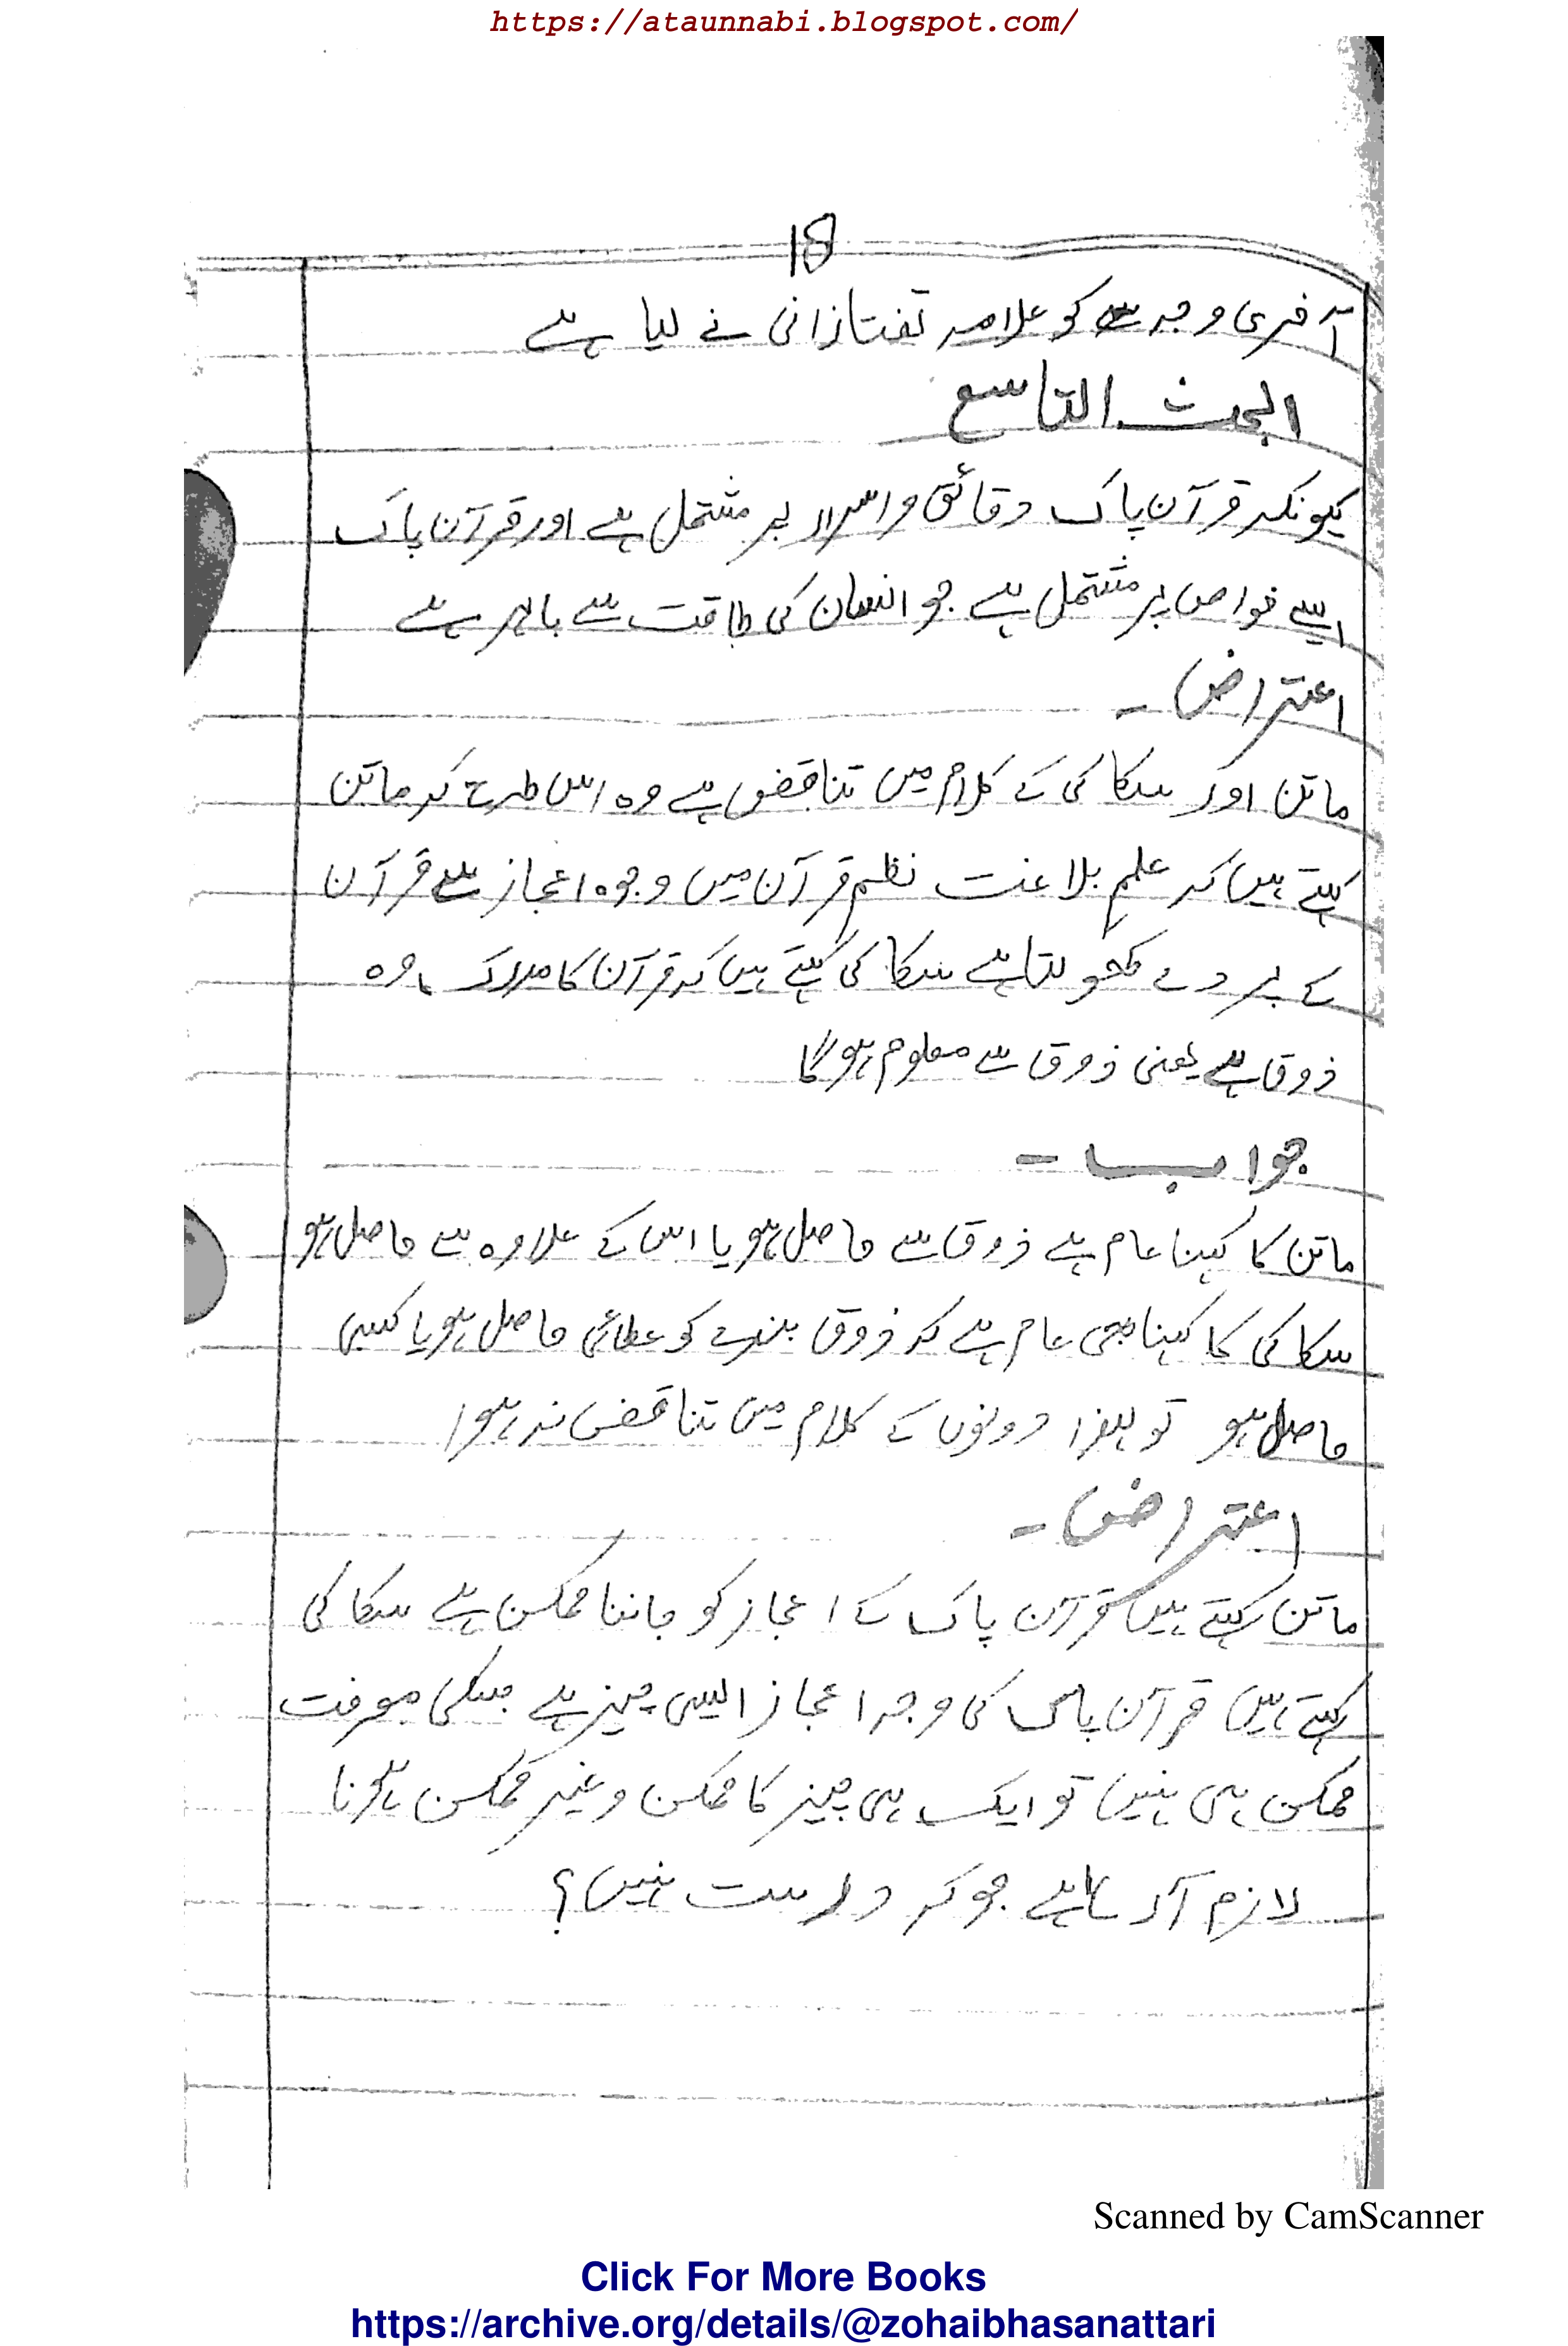 https://ataunnabi.blogspot.com/
18
آخری وجہ کو علامہ تفتازانی نے لیا ہے
البحث التاسع
کیونکہ قرآن پاک دقائق و اسرار پر مشتمل ہے اور قرآن پاک
ایسے خواص پر مشتمل ہے جو انسان کی طاقت سے باہر ہے
اعتراض -
ماتن اور سکاکی کے کلام میں تناقض ہے وہ اس طرح کہ ماتن
کہتے ہیں کہ علم بلاغت نظم قرآن میں وجوہ اعجاز سے قرآن
کے پردے کھولتا ہے سکاکی کہتے ہیں کہ قرآن کا مدرک وہ
ذوق ہے یعنی ذوق سے معلوم ہوگا
جواب -
ماتن کا کہنا عام ہے ذوق سے حاصل ہو یا اس کے علاوہ سے حاصل ہو
سکاکی کا کہنا بھی عام ہے کہ ذوق بندے کو عطائی حاصل ہو یا کسبی
حاصل ہو تو لہذا دونوں کے کلام میں تناقض نہ ہوا
اعتراض -
ماتن کہتے ہیں قرآن پاک کے اعجاز کو جاننا ممکن ہے سکاکی
کہتے ہیں قرآن پاک کی وجہ اعجاز ایسی چیز ہے جسکی معرفت
ممکن ہی نہیں تو ایک ہی چیز کا ممکن و غیر ممکن ہونا
لازم آرہا ہے جو کہ درست نہیں؟
Scanned by CamScanner
Click For More Books
https://archive.org/details/@zohaibhasanattari